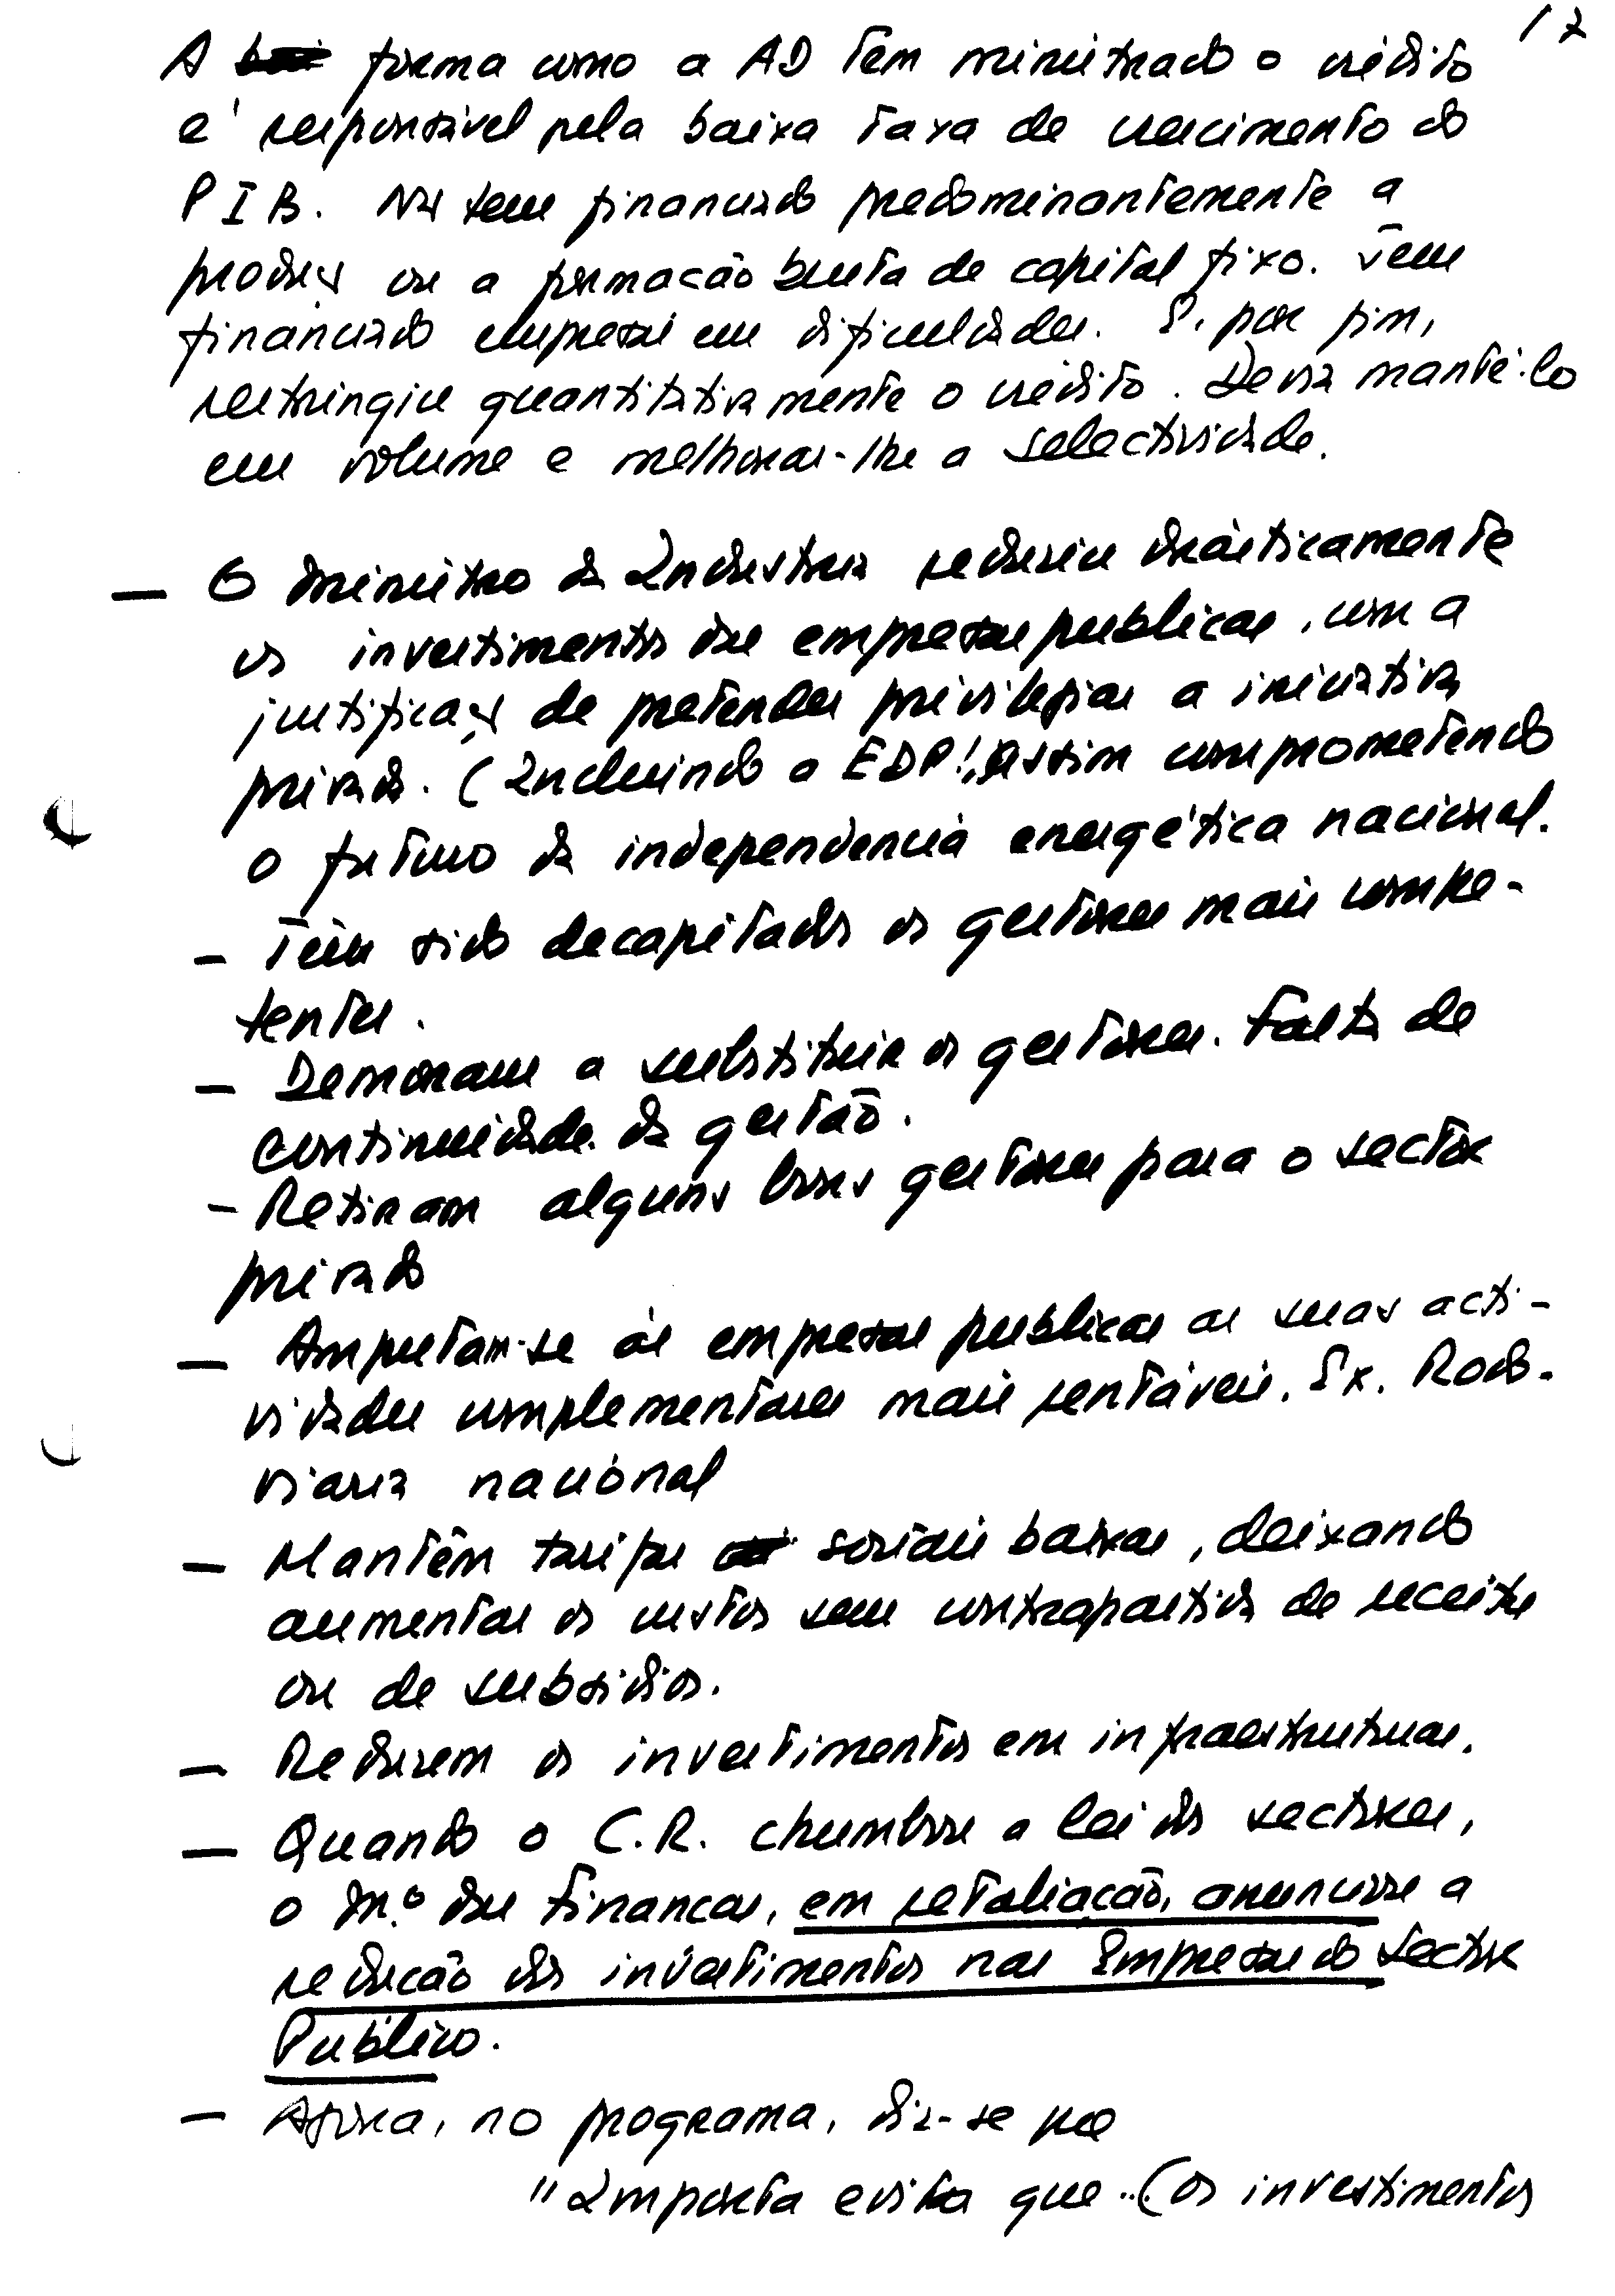 17
A forma como a AD tem ministrado o crédito
é responsável pela baixa taxa de crescimento do
PIB. Não tem financiado predominantemente a
produção ou a formação bruta de capital fixo. Vem
financiado empresas em dificuldades. E, por fim,
restringiu quantitativamente o crédito. Devia mantê-lo
em volume e melhorar-lhe a selectividade.
— O Ministro da Industria reduziu drásticamente
os investimentos das empresas publicas, com a
justificação de pretender privilegiar a iniciativa
privada. (Incluindo a EDP!, assim comprometendo
o futuro da independencia energética nacional.
- Têm sido decapitados os gestores mais compe-
tentes.
- Demoram a substituir os gestores. Falta de
continuidade da gestão.
- Retiram alguns bons gestores para o sector
privado
— Amputam-se às empresas publicas as suas acti-
vidades complementares mais rentáveis. Ex. Rodo-
viaria nacional
— Mantêm tarifas sociais baixas, deixando
aumentar os custos sem contrapartida de receitas
ou de subsidios.
— Reduzem os investimentos em infraestruturas.
— Quando o C.R. chumbou a lei dos sectores,
o M.º das Finanças, em retaliação, anunciou a
redução dos investimentos nas Empresas do Sector
Publico.
— Agora, no programa, diz-se que
"Importa evitar que ..(os investimentos